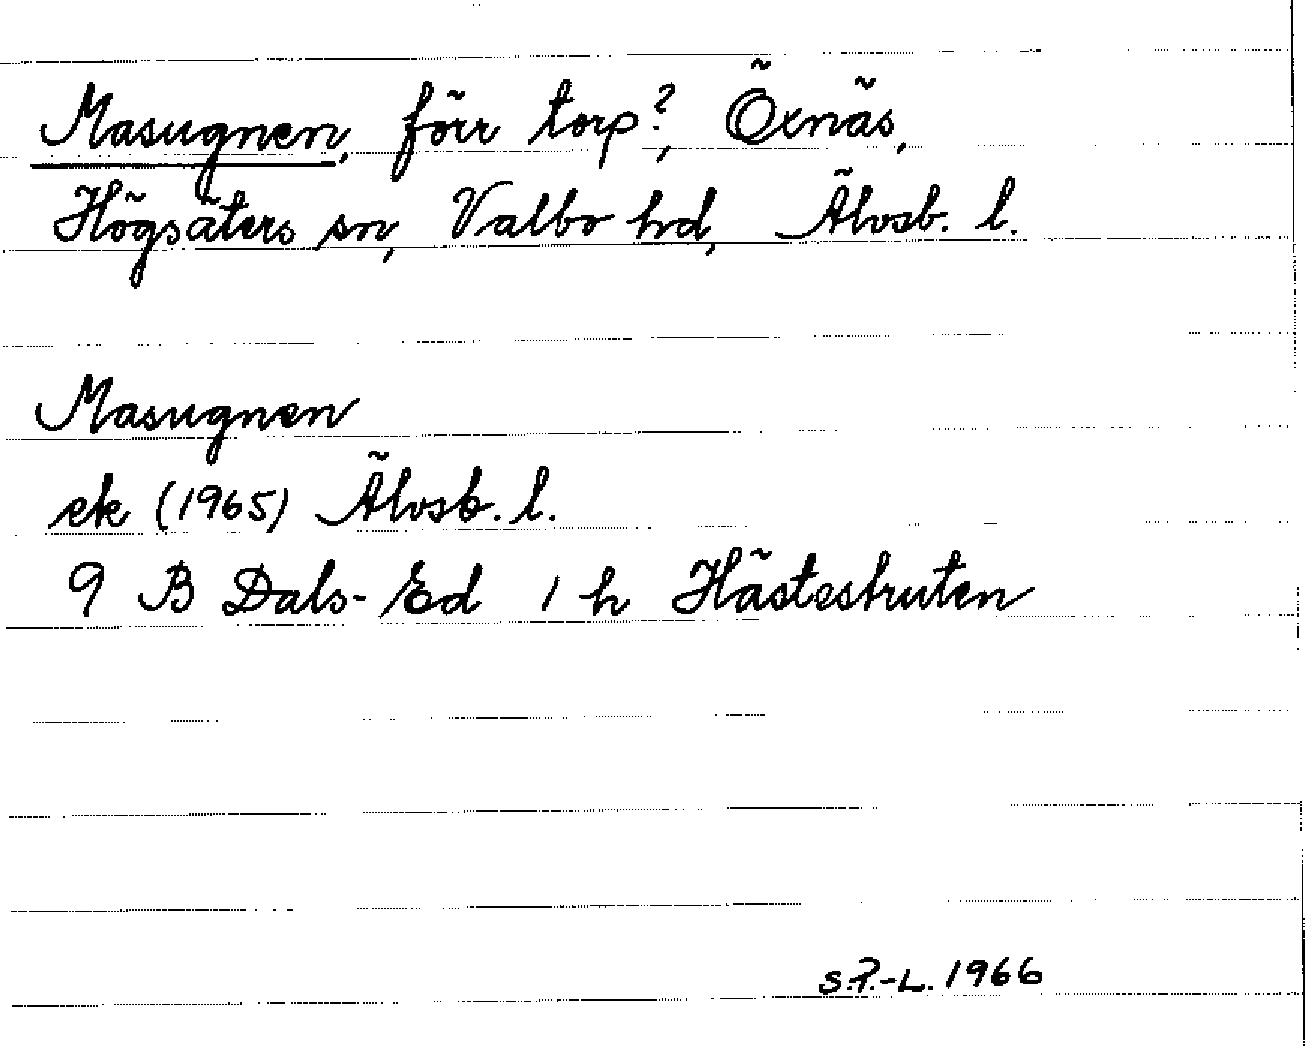 Masugnen, förr torp?, Öxnäs,
Högsäters sn, Valbo hd, Älvsb. l.
Masugnen
ek (1965) Älvsb. l.
9 B Dals-Ed 1 h Hästeskruten
S.P.-L. 1966